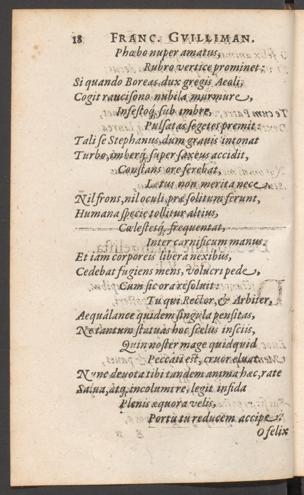 18 FRANC. GVILLIMAN.
Phœbo nuper amatus,
Rubro vertice prominet:
Si quando Boreas dux gregis Aeoli,
Cogit raucisono nubila murmure,
Infestoq́; sub imbre,
Pulsatas segetes premit:
Tali se Stephanus, dum grauis intonat
Turbo, imberq́; super saxeus accidit,
Constans ore ferebat,
Lætus non merita nece.
Nil frons, nil oculi, præsolitum ferunt,
Humana specie tollitur altius,
Cælestesq́; frequentat,
Inter carnificum manus.
Et iam corporeis libera nexibus,
Cedebat fugiens mens, volucri pede,
Cum sic ora resoluit:
Tu qui Rector, & Arbiter,
Aequa lance quidem singula pensitas,
Ne tantum statuas hoc scelus insciis,
Quin noster mage quidquid
Peccati est, cruor eluat.
Nunc deuota tibi tandem anima hæc, rate
Salua, atq́; incolumi re, legit insida
Plenis æquora velis,
Portu tu reducem accipe.
O felix